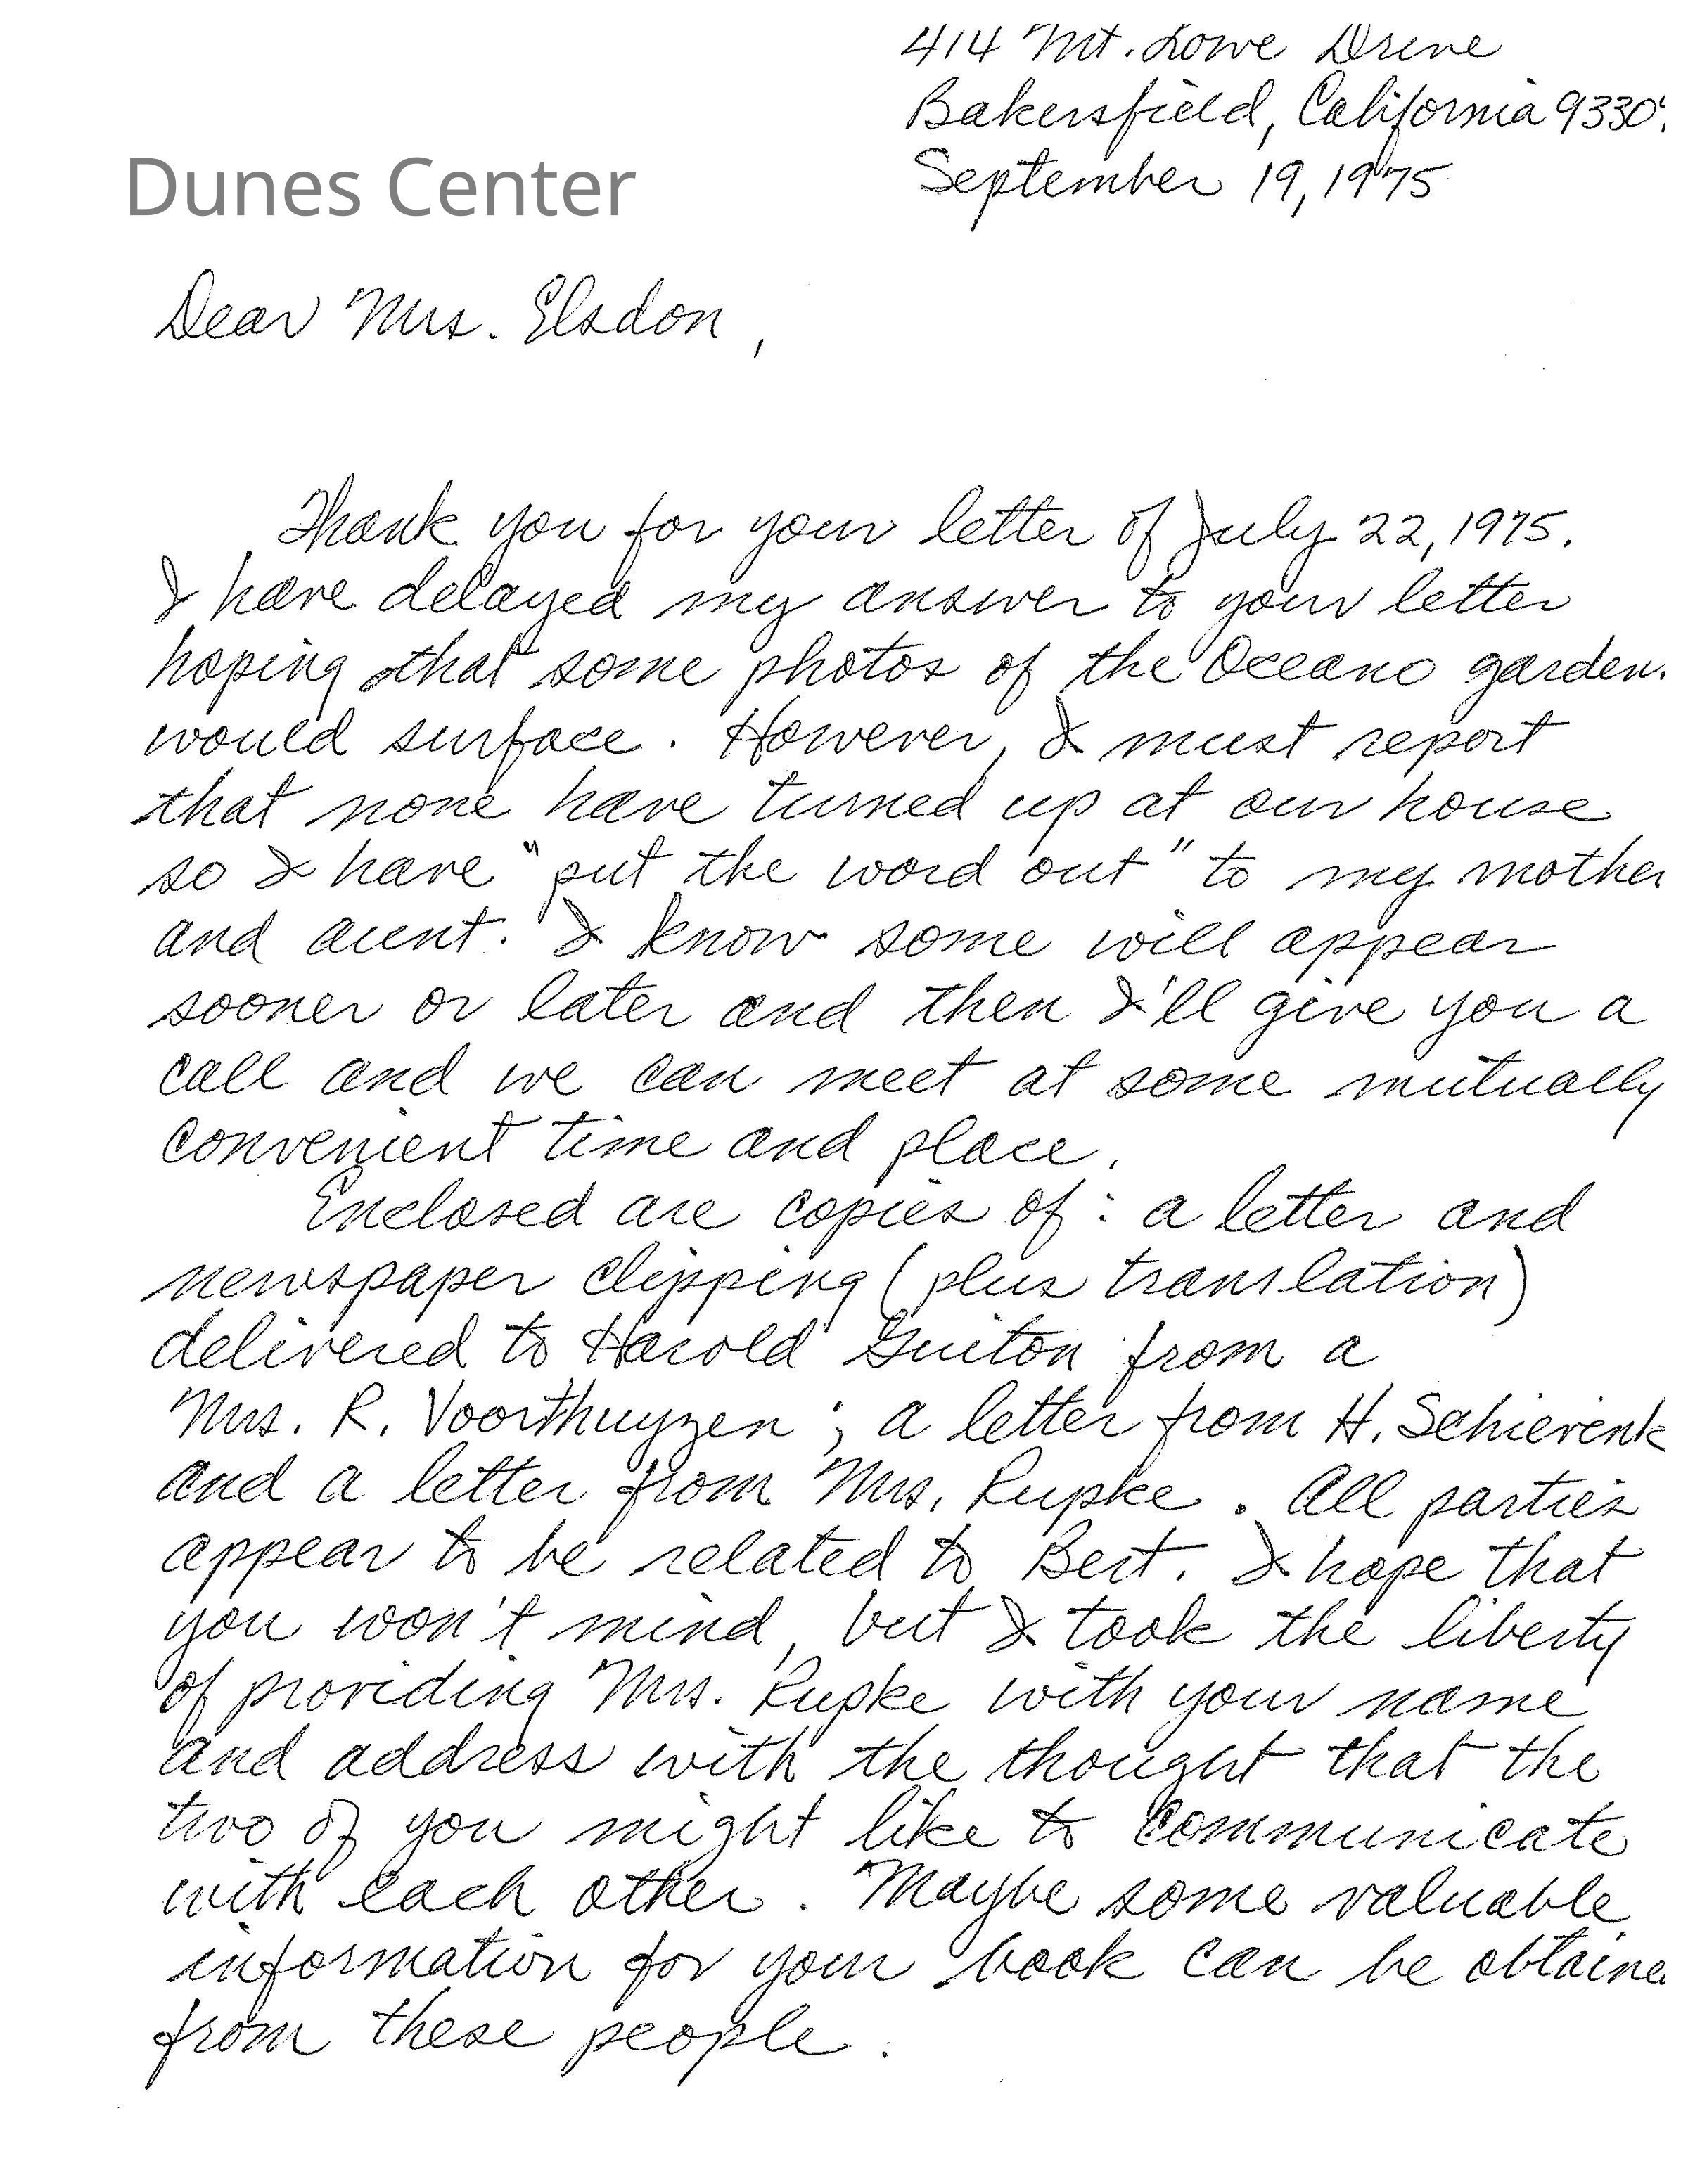 414 Mt. Lowe Drive
Bakersfield, California 9330
September 19, 1975
Dunes Center
Dear Mrs. Elsdon,
Thank you for your letter of July 22, 1975.
I have delayed my answer to your letter
hoping that some photos of the Oceano garden.
would surface. However, I must report
that none have turned up at our house
so I have "put the word out" to my mother
and aunt. I know some will appear
sooner or later and then I'll give you a
call and we can meet at some mutually
convenient time and place.
Enclosed are copies of: a letter and
newspaper clipping (plus translation)
delivered to Harold Guiton from a
Mrs. R. Voorthuyzen; a letter from H. Schierenk
and a letter from Mrs. Rupke. All parties
appear to be related to Bert. I hope that
you won't mind, but I took the liberty
of providing Mrs. Rupke with your name
and address with the thought that the
two of you might like to communicate
with each other. Maybe some valuable
information for your book can be obtaine
from these people.